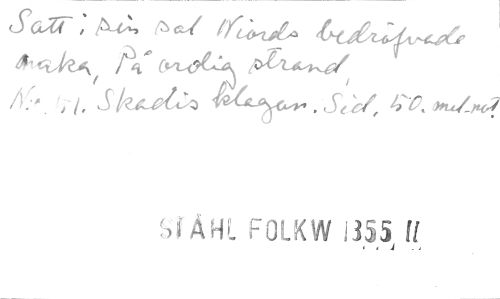 Satt i sin sal Niords bedröfvade
maka, På ordig strand,
N:o 51. Skadis klagan. Sid. 50. mel.-not.
STÅHL FOLKW 1355 II